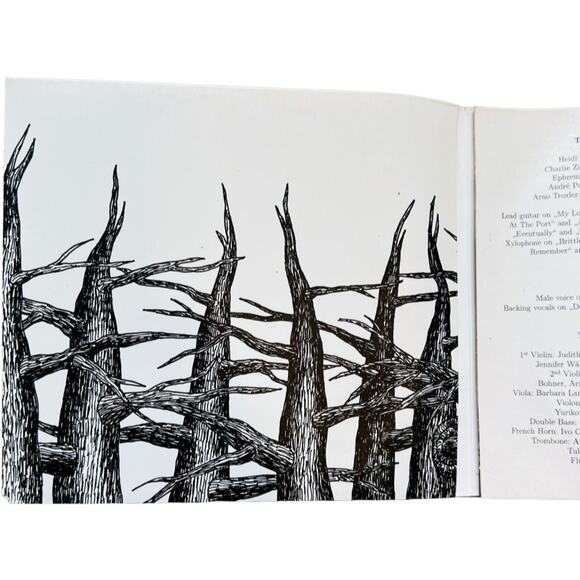 T
Heidi
Charlie Z
Ephrem
André P
Arno Troxler:
Lead guitar on „My Lo
At The Port“ and „
„Eventually“ and „
Xylophone on „Brittl
Remember“ a
Male voice o
Backing vocals on „D
1st Violin: Judith
Jennifer Wä
2nd Violi
Bohner, Ar
Viola: Barbara Lan
Violon
Yuriko
Double Bass:
French Horn: Ivo C
Trombone: A
Tub
Fl